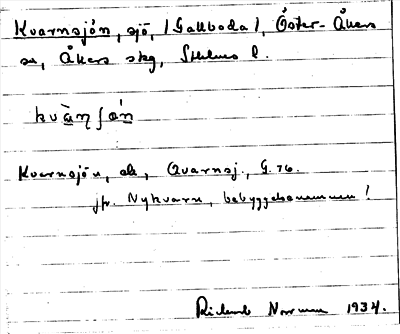 Kvarnsjön, sjö, /Gallboda/, Öster-Åkers
sn, Åkers skg, Sthlms l.
kvà̀ηʃøn
Kvarnsjön, ek, Qvarnsj., G. 76.
jfr. Nykvarn, bebyggelsenamnen!
Rickard Norrman 1934.